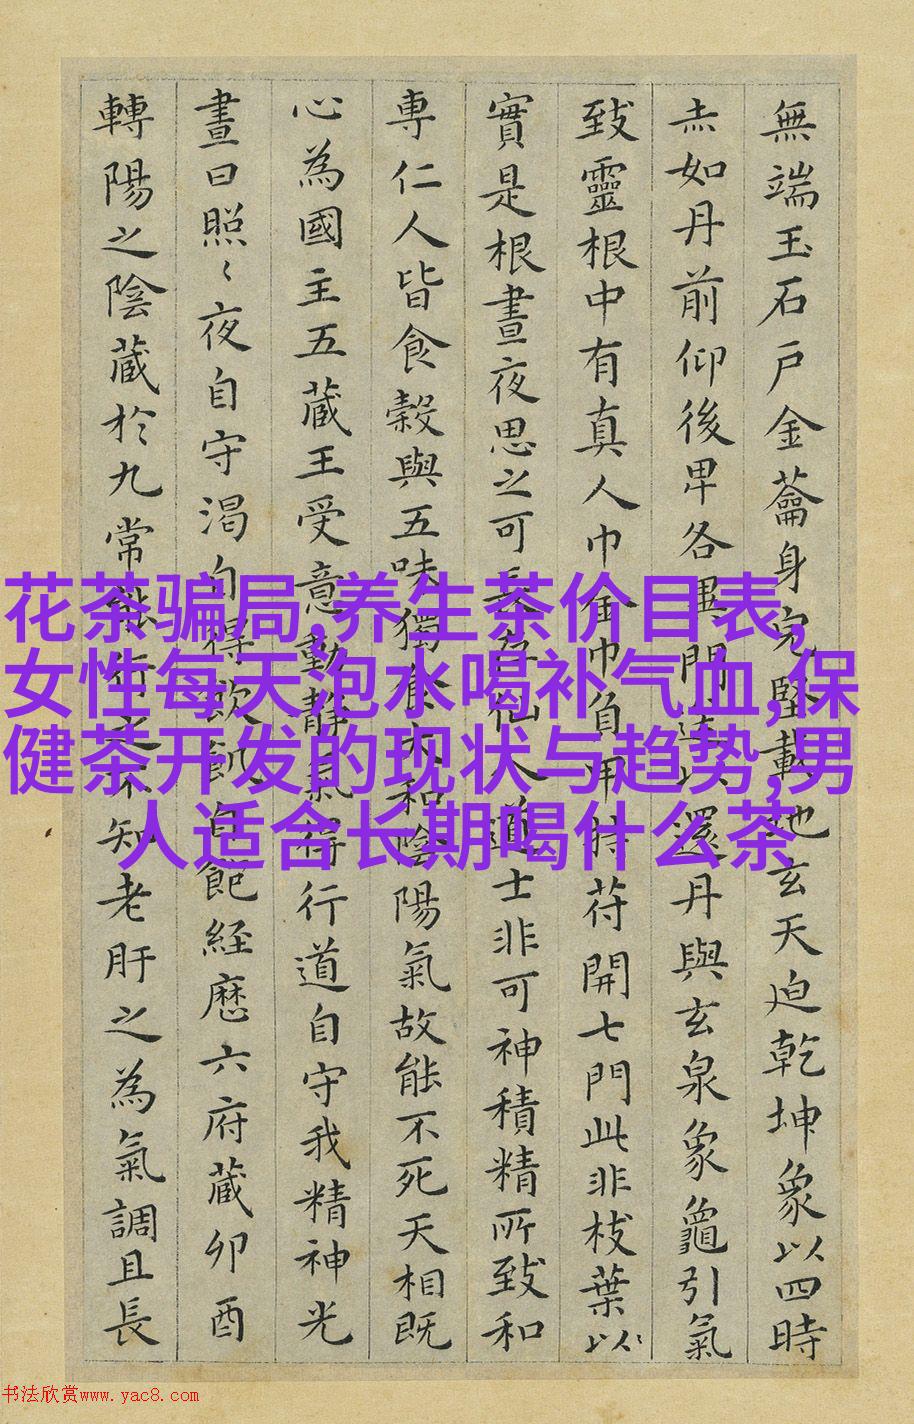 無端玉石戶金蘥身完堅載地玄天迫乾坤象以四時
赤如丹前仰後卑各異門送以還丹與玄泉象龜引氣
致靈根中有真人巾金巾負甲持苻開七門此非枝葉以
實是根晝夜思之可長存仙人道士非可神積精所致和
專仁人皆食穀與五味獨食太和陰陽氣故能不死天相既
心為國主五藏王受意動靜氣得行道自守我精神光
晝日照〻夜自守渴自得飲飢自飽經歷六府藏卯酉
轉陽之陰藏於九常能行之不知老肝之為氣調且長
花茶骗局,养生茶价目表,
女性每天泡水喝补气血,保
健茶开发的现状与趋势,男
人适合长期喝什么茶
书法欣赏www.yac8.com